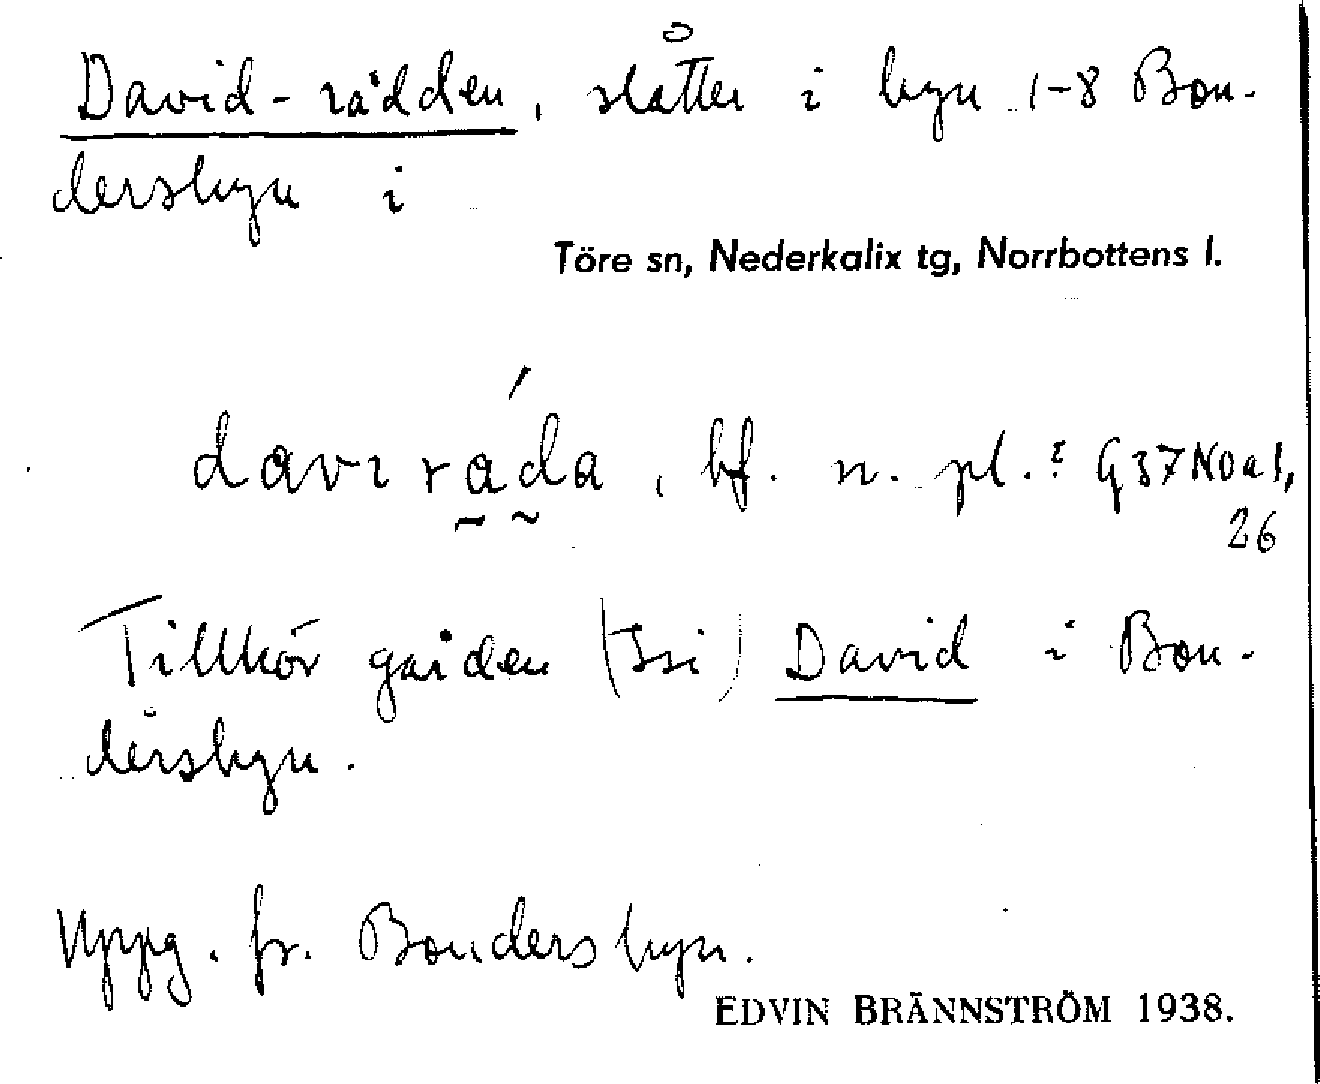 David-rådden, slåtter i byn 1-8 Bon-
dersbyn i
Töre sn, Nederkalix tg, Norrbottens l.
davıráda, bf. n. pl.? G37N0a1,
26
Tillhör gården (Isi) David i Bon-
dersbyn.
Uppg. fr. Bondersbyn.
EDVIN BRÄNNSTRÖM 1938.